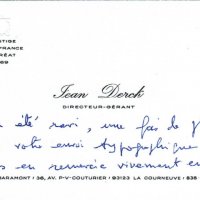 TIGE
FRANCE
RÉAT
69
Jean Derck
DIRECTEUR-GÉRANT
été ravi, une fois de
votre envoi typographique
en remercie vivement en
HARAMONT • 36, AV. P-V-COUTURIER • 93123 LA COURNEUVE • 835